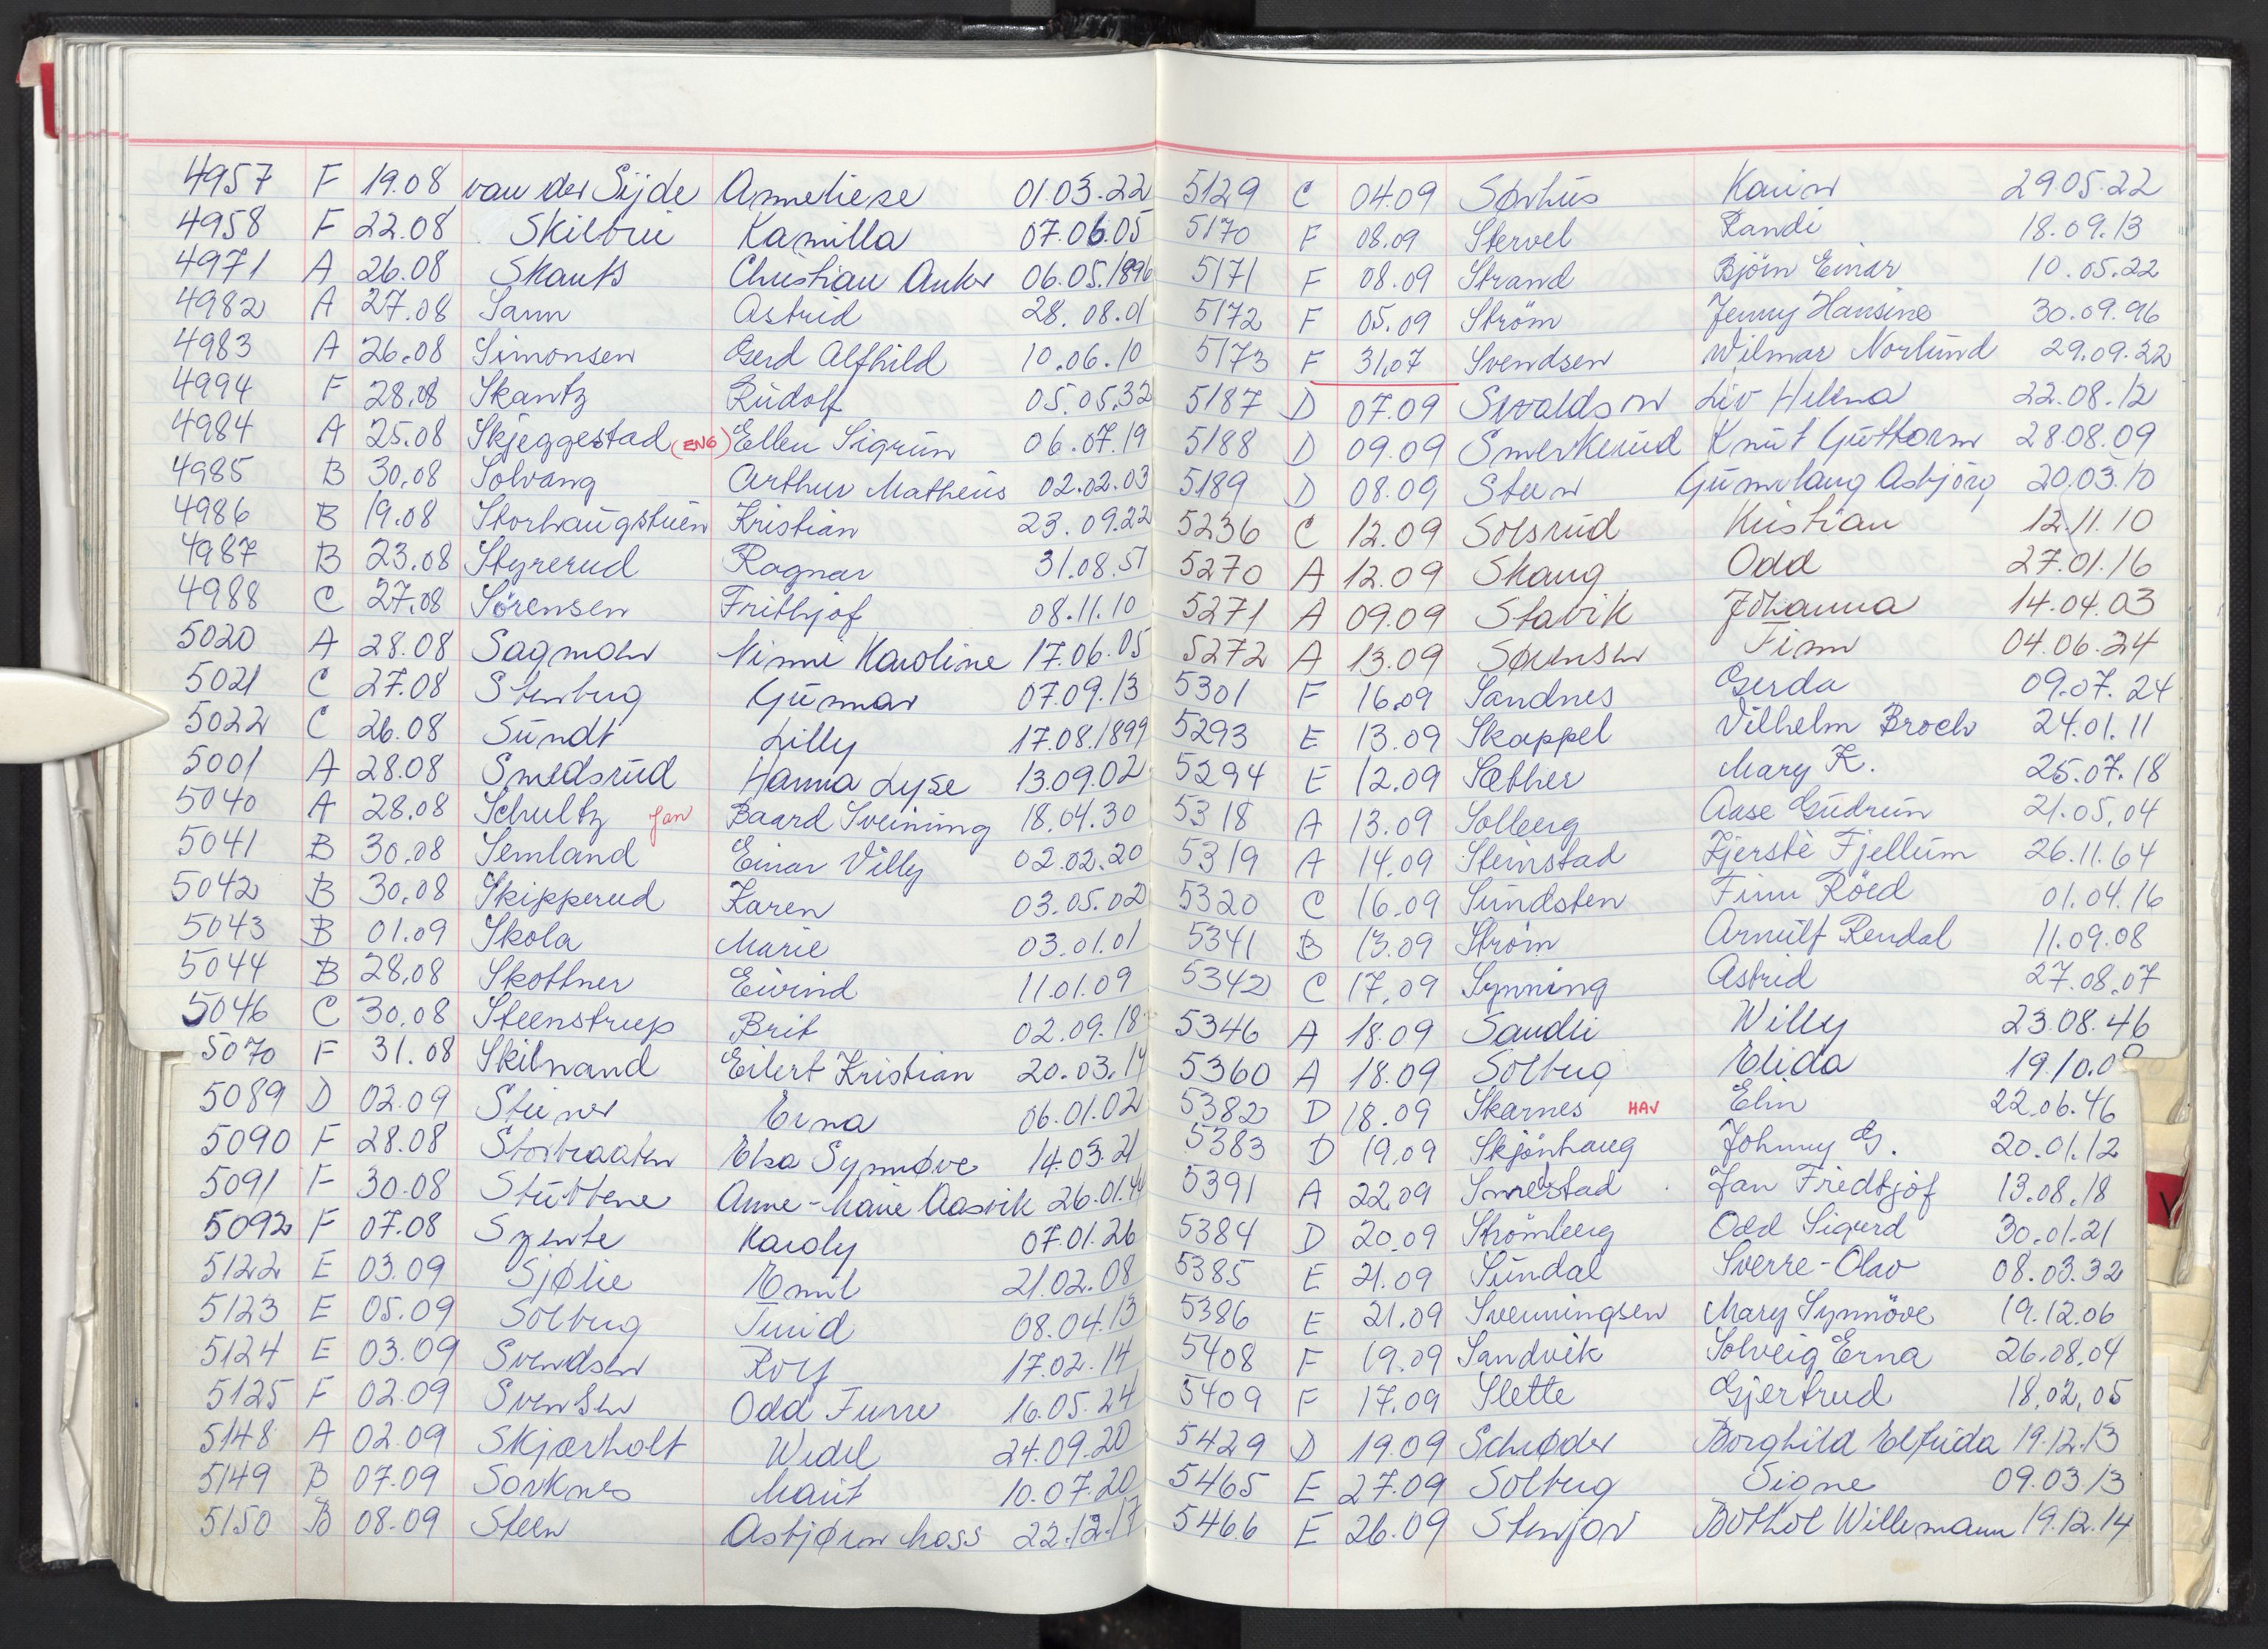 4957 F 19.08 van der Sijde Anneliese 01.03.22
4958 F 22.08 Skilbrei Kamilla 07.06.05
4971 A 26.08 Skauts Christian Anker 06.05.1896
4982 A 27.08 Sann Astrid 28.08.01
4983 A 26.08 Simonsen Gerd Alfhild 10.06.10
4994 F 28.08 Skantz Rudolf 05.05.32
4984 A 25.08 Skjeggestad (ENG) Ellen Sigrun 06.07.19
4985 B 30.08 Solvang Arthur Matheus 02.02.03
4986 B 19.08 Storhaugstuen Kristian 23.09.22
4987 B 23.08 Styrerud Ragnar 31.08.51
4988 C 27.08 Sörensen Frithjof 08.11.10
5020 A 28.08 Sagmoen Ninni Karoline 17.06.05
5021 C 27.08 Stenberg Gunnar 07.09.13
5022 C 26.08 Sundt Lilly 17.08.1899
5001 A 28.08 Smedsrud Hanna Lyse 13.09.02
5040 A 28.08 Schultz Jan Baard Sveining 18.04.30
5041 B 30.08 Semland Einar Villy 02.02.20
5042 B 30.08 Skipperud Karen 03.05.02
5043 B 01.09 Skola Marie 03.01.01
5044 B 28.08 Skottner Eivind 11.01.09
5046 C 30.08 Steenstrup Brit 02.09.18
5070 F 31.08 Skilnand Eilert Kristian 20.03.14
5089 D 02.09 Steiner Erna 06.01.02
5090 F 28.08 Storbraaten Elsa Synnøve 14.03.21
5091 F 30.08 Stuttene Anne-Marie Aasvik 26.01.44
5092 F 07.08 Szente Karoly 07.01.26
5122 E 03.09 Sjølie Emil 21.02.08
5123 E 05.09 Solberg Turid 08.04.13
5124 E 03.09 Svendsen Rolf 17.02.14
5125 F 02.09 Svensen Odd Furre 16.05.24
5148 A 02.09 Skjærholt Widel 24.09.20
5149 B 07.09 Sorknes Marit 10.07.20
5150 B 08.09 Steen Asbjørn Moss 22.12.17
5129 C 04.09 Sørhus Karin 29.05.22
5170 F 08.09 Stervel Randi 18.09.13
5171 F 08.09 Strand Björn Einar 10.05.22
5172 F 05.09 Ström Jenny Hansine 30.09.96
5173 F 31.07 Svendsen Wilmar Norlund 29.09.22
5187 D 07.09 Sivaldsen Liv Helena 22.08.12
5188 D 09.09 Smerkerud Knut Guttorm 28.08.09
5189 D 08.09 Steen Gunnlaug Asbjörg 20.03.10
5236 C 12.09 Solsrud Kristian 12.11.10
5270 A 12.09 Skaug Odd 27.01.16
5271 A 09.09 Stavik Johanna 14.04.03
5272 A 13.09 Sørensen Finn 04.06.24
5301 F 16.09 Sandnes Gerda 09.07.24
5293 E 13.09 Skappel Vilhelm Broch 24.01.11
5294 E 12.09 Sæther Mary K. 25.07.18
5318 A 13.09 Solberg Aase Gudrun 21.05.04
5319 A 14.09 Steinstad Kjersti Fjellum 26.11.64
5320 C 16.09 Sundsten Finn Röed 01.04.16
5341 B 13.09 Ström Arnulf Rendal 11.09.08
5342 C 17.09 Synning Astrid 27.08.07
5346 A 18.09 Sandli Willy 23.08.46
5360 A 18.09 Solberg Elida 19.10.0
5382 D 18.09 Skarnes HAV Elin 22.06.46
5383 D 19.09 Skjönhaug Johnny G. 20.01.12
5391 A 22.09 Smestad Jan Fredtjof 13.08.18
5384 D 20.09 Strömberg Odd Sigurd 30.01.21
5385 E 21.09 Sundal Sverre-Olav 08.03.32
5386 E 21.09 Svenningsen Mary Synnöve 19.12.06
5408 F 19.09 Sandvik Solveig Erna 26.08.04
5409 F 17.09 Slette Gjertrud 18.02.05
5429 D 19.09 Schrøder Borghild Elfrida 19.12.13
5465 E 27.09 Solberg Signe 09.03.13
5466 E 26.09 Stenjor Bothol Willemann 19.12.14